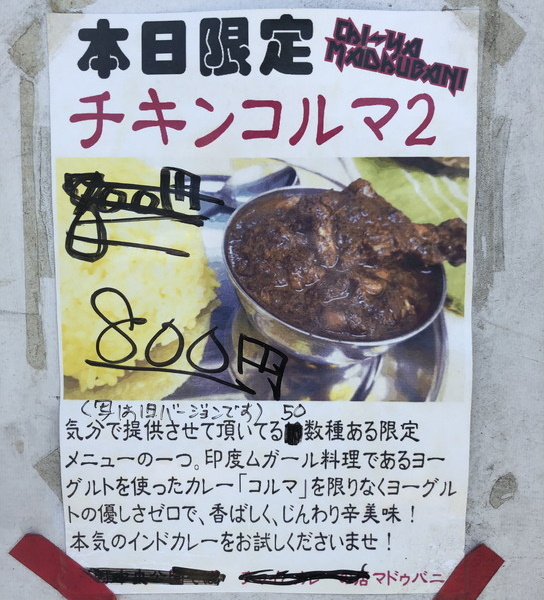 本日限定
CHI-YA
MADHUBANI
チキンコルマ2
800円
(写は旧バージョンです) 50
気分で提供させて頂いてる数種ある限定
メニューの一つ。印度ムガール料理であるヨー
グルトを使ったカレー「コルマ」を限りなくヨーグル
トの優しさゼロで、香ばしく、じんわり辛美味！
本気のインドカレーをお試しくださいませ！
マドゥバニ